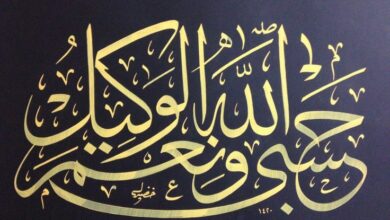 حسبي الله ونعم الوكيل
١٤٢٠